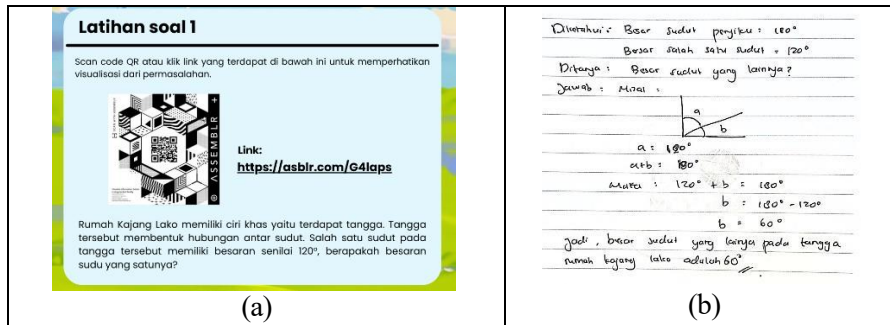 Latihan soal 1
Scan code QR atau klik link yang terdapat di bawah ini untuk memperhatikan
visualisasi dari permasalahan.
ASSEMBLR
Link:
https://asblr.com/G4laps
Rumah Kajang Lako memiliki ciri khas yaitu terdapat tangga. Tangga
tersebut membentuk hubungan antar sudut. Salah satu sudut pada
tangga tersebut memiliki besaran senilai 120°, berapakah besaran
sudu yang satunya?
(a)
Diketahui: Besar sudut penyiku: 180°
Besar salah satu sudut = 120°
Ditanya: Besar sudut yang lainnya?
Jawab: Misal:
a
b
a = 120°
a+b = 180°
Maka: 120° + b = 180°
b = 180° - 120°
b = 60°
Jadi, besar sudut yang lainya pada tangga
rumah kajang lako adalah 60°
(b)